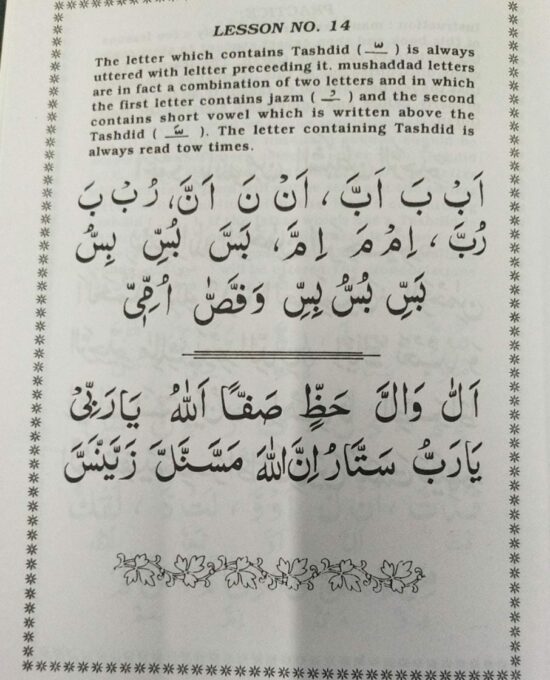 LESSON NO. 14
The letter which contains Tashdid ( ـّـ ) is always
uttered with leltter preceeding it. mushaddad letters
are in fact a combination of two letters and in which
the first letter contains jazm ( ـْـ ) and the second
contains short vowel which is written above the
Tashdid ( ـَّـ ). The letter containing Tashdid is
always read tow times.
اَبْ بَ اَبَّ ، اَنْ نَ اَنَّ، رُبْ بَ
رُبَّ ، اِمْ مَ اِمَّ، بَسَّ بُسِّ بِسُّ
بَسِّ بُسُّ بِسِّ وَفَصّٰ اُمِّیّ
اَلّٰ وَالَّ حَظٍّ صَفًّا اَللهُ يَارَبِّىْ
يَارَبُّ سَتَّارُ اِنَّ اللهَ مَسَّنَلَّ زَيَّنَسَّ